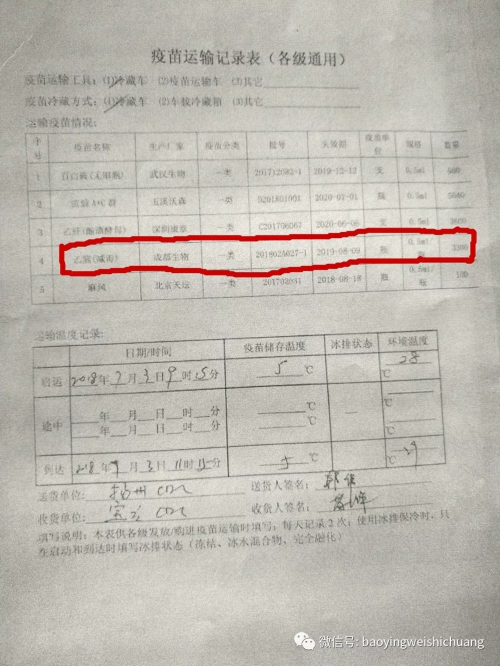 疫苗运输记录表（各级通用）
疫苗运输工具：(1)冷藏车 (2)疫苗运输车 (3)其它
疫苗冷藏方式：(1)冷藏车 (2)车载冷藏箱 (3)其它
运输疫苗情况：
序号 疫苗名称 生产厂家 疫苗分类 批号 失效期 单位 规格 数量
1 百白破(无细胞) 武汉生物 一类 2019-12-12 支 0.5ml
2 A+C群 玉溪沃森 一类 2020-01-01 瓶
3 乙肝(酿酒酵母) 深圳康泰 一类 C201706067 2020-06-06 支 0.5ml
4 乙脑(减毒) 成都生物 一类 2019-08-09 瓶 0.5ml/
5 麻风 北京天坛 一类 2018-08-18 瓶 0.5ml/瓶
运输温度记录：
日期/时间 疫苗储存温度 冰排状态 环境温度
启运 2018年7月3日9时15分 5℃ 28℃
途中 年 月 日 时 分 ℃ ℃
年 月 日 时 分 ℃ ℃
到达 月3日11时15分 5℃ 29℃
送货单位：扬州CDC 送货人签名：
收货单位：宝应CDC 收货人签名：
填写说明：本表供各级发放/购进疫苗运输时填写；每天记录2次；使用冰排保冷时，只
在启动和到达时填写冰排状态（冻结、冰水混合物、完全融化）
微信号: baoyingweishichuang